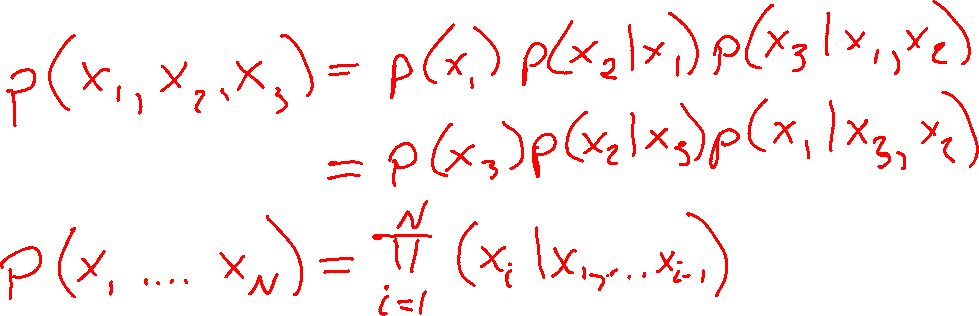 p(x₁, x₂, x₃) = p(x₁) p(x₂|x₁) p(x₃|x₁, x₂)
= p(x₃) p(x₂|x₃) p(x₁|x₃, x₂)
p(x₁ .... x_N) = ∏_{i=1}^{N} (x_i | x₁, ... x_{i-1})